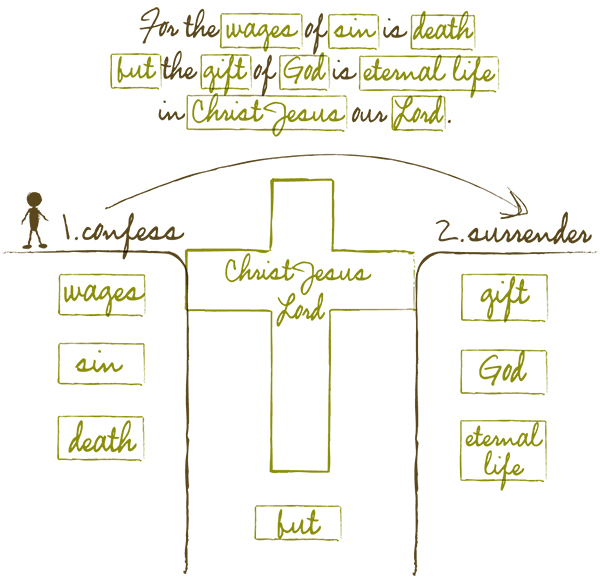 For the wages of sin is death
but the gift of God is eternal life
in Christ Jesus our Lord.
1. confess
2. surrender
Christ Jesus
Lord
wages
gift
sin
God
death
eternal
life
but